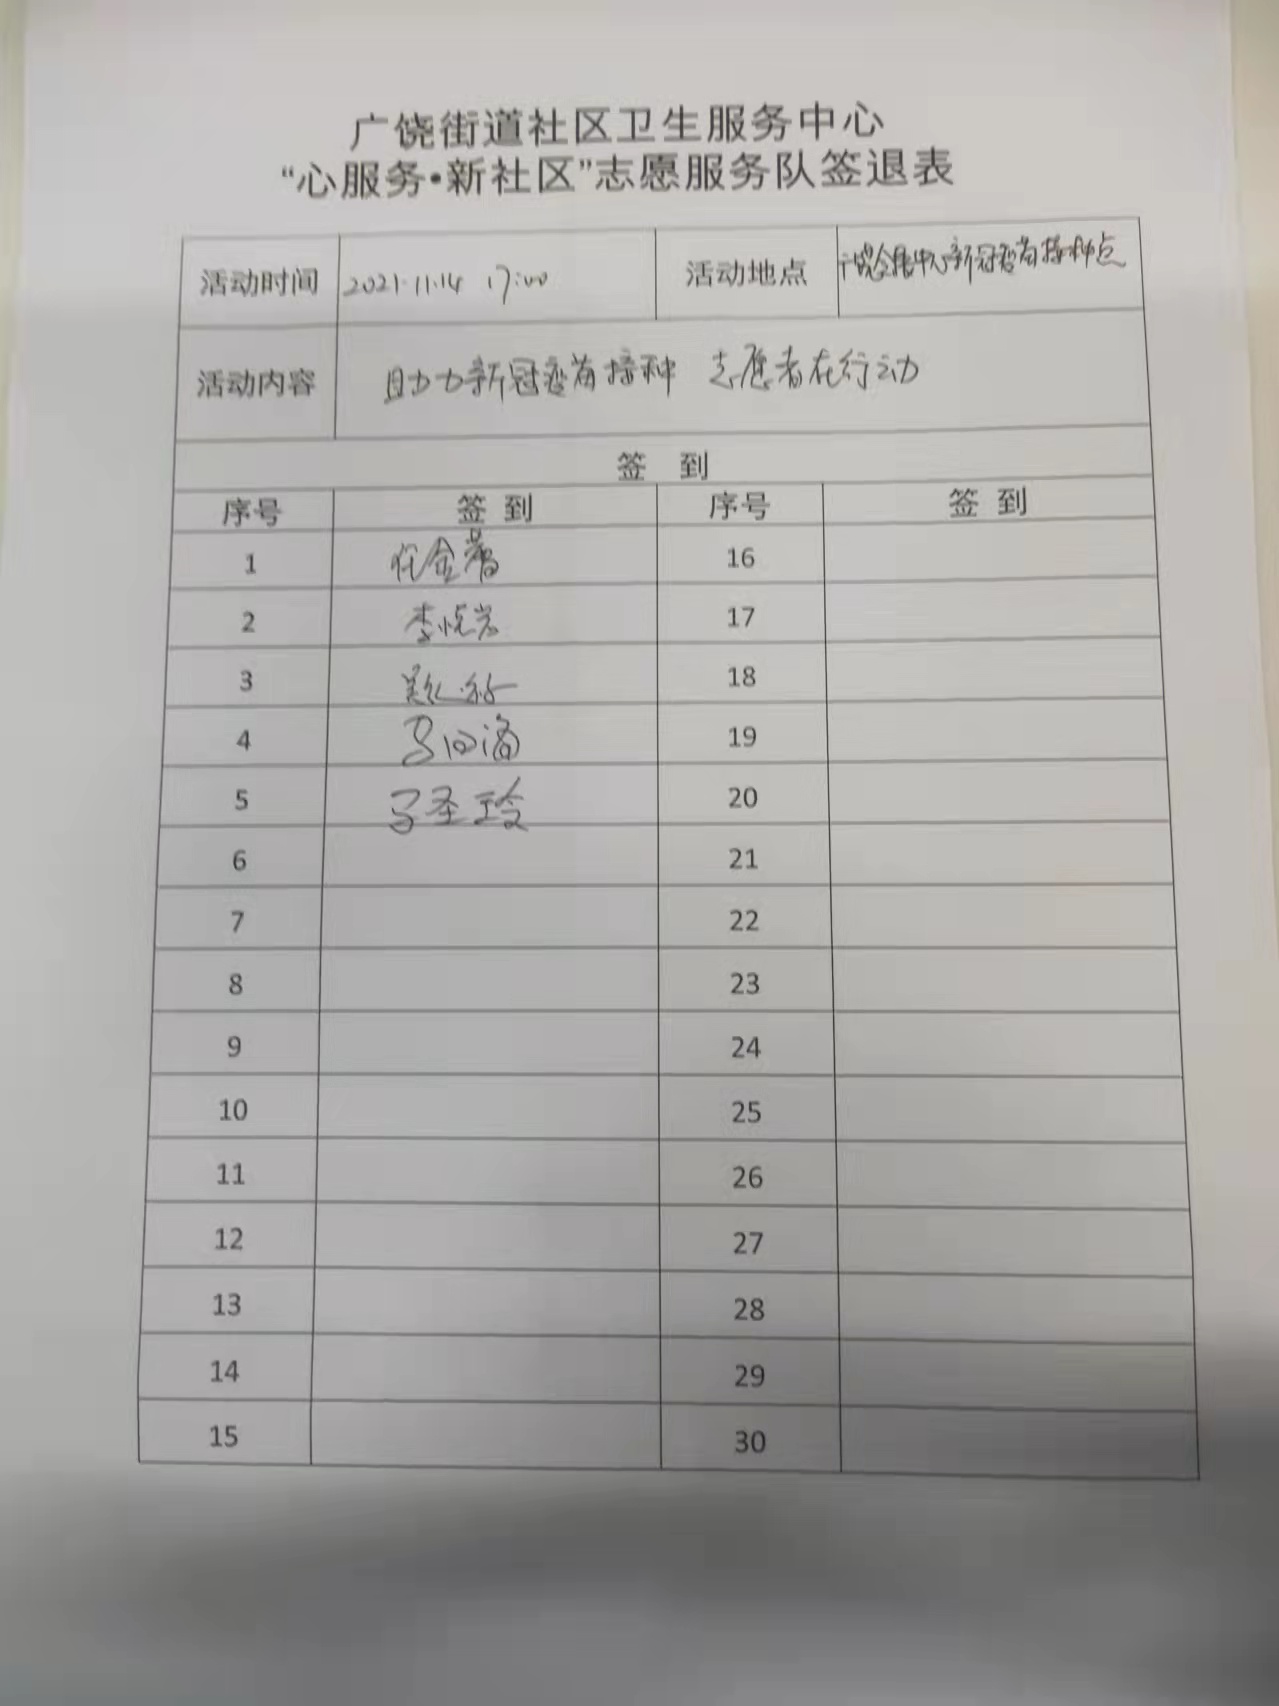 广饶街道社区卫生服务中心
“心服务•新社区”志愿服务队签退表
活动时间 2021.11.14 17:00 活动地点 会展中心新冠疫苗接种点
活动内容 助力新冠疫苗接种 志愿者在行动
签 到
序号 签 到 序号 签 到
1 任金 16
2 李悦岩 17
3 18
4 马 19
5 马圣玲 20
6 21
7 22
8 23
9 24
10 25
11 26
12 27
13 28
14 29
15 30